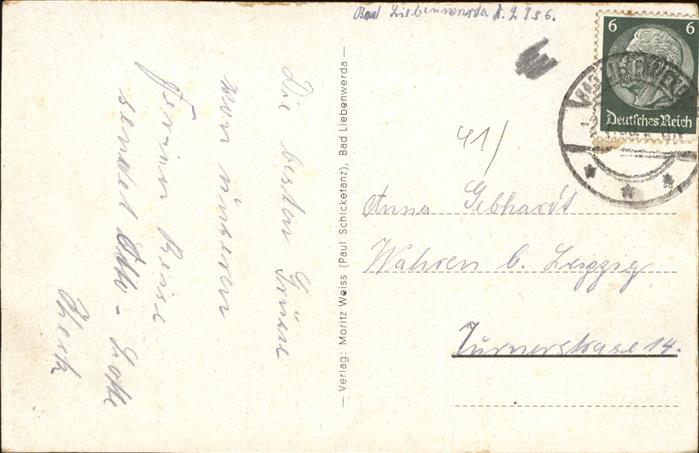 Bad Liebenwerda
6 6
Deutsches Reich
41/
Die besten Grüsse
von unseren
Ferien Reise
sendet Otto - Lotte
Verlag: Moritz Weiss (Paul Schicketanz), Bad Liebenwerda
Anna Gebhardt
Wahren b. Leipzig
Turnerstrase 14.